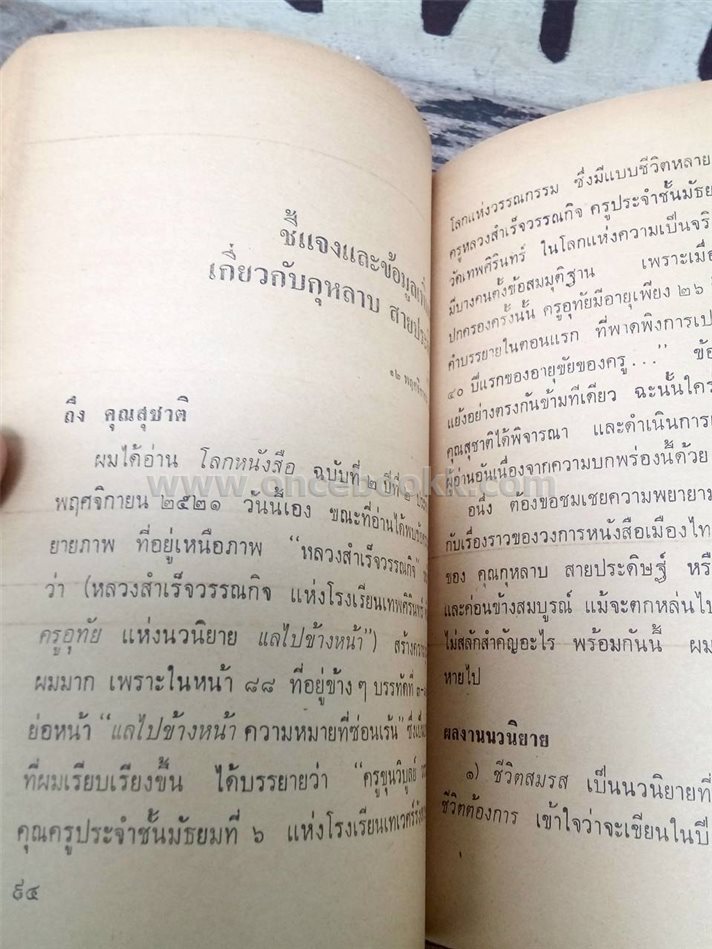 ชี้แจงและข้อมูลเพิ่ม
เกี่ยวกับกุหลาบ สายประ
๑๒
ถึง คุณสุชาติ
ผมได้อ่าน โลกหนังสือ ฉบับที่ ๒ ปีที่ ๒
พฤศจิกายน ๒๕๒๑ วันนี้เอง ขณะที่อ่านได้พบ
ยายภาพ ที่อยู่เหนือภาพ “หลวงสำเร็จวรรณกิจ”
ว่า (หลวงสำเร็จวรรณกิจ แห่งโรงเรียนเทพศิรินทร์
ครูอุทัย แห่งนวนิยาย แลไปข้างหน้า”) สร้าง
ผมมาก เพราะในหน้า ๘๘ ที่อยู่ข้างๆ บรรทัดที่
ย่อหน้า “แลไปข้างหน้า ความหมายที่ซ่อนเร้น”
ที่ผมเรียบเรียงขึ้น ได้บรรยายว่า “ครูขุนวิบูลย์
คุณครูประจำชั้นมัธยมที่ ๖ แห่งโรงเรียน
๙๔
โลกแห่งวรรณกรรม ซึ่งมีแบบชีวิตหลาย
ครูหลวงสำเร็จวรรณกิจ ครูประจำชั้นมัธย
วัดเทพศิรินทร์ ในโลกแห่งความเป็นจริ
มีบางคนตั้งข้อสมมุติฐาน เพราะเมื่อ
ปกครองครั้งนั้น ครูอุทัยมีอายุเพียง ๒๖
คำบรรยายในตอนแรก ที่พาดพิงการเป
๔๐ ปีแรกของอายุขัยของครู...” ข้อ
แย้งอย่างตรงกันข้ามทีเดียว ฉะนั้นใคร
คุณสุชาติได้พิจารณา และดำเนินการแ
ผู้อ่านอันเนื่องจากความบกพร่องนี้ด้วย
อนึ่ง ต้องขอชมเชยความพยายาม
กับเรื่องราวของวงการหนังสือเมืองไท
ของ คุณกุหลาบ สายประดิษฐ์ หรื
และค่อนข้างสมบูรณ์ แม้จะตกหล่นไป
ไม่สลักสำคัญอะไร พร้อมกันนี้ ผม
หายไป
ผลงานนวนิยาย
๑) ชีวิตสมรส เป็นนวนิยายที่
ชีวิตต้องการ เข้าใจว่าจะเขียนในปี
www.oncebookk.com